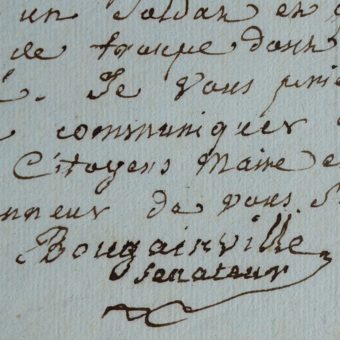 un Soldat en
de troupe donn
. Je vous prie
communiquer
Citoyens Maire e
nneur de vous S
Bougainville
senateur